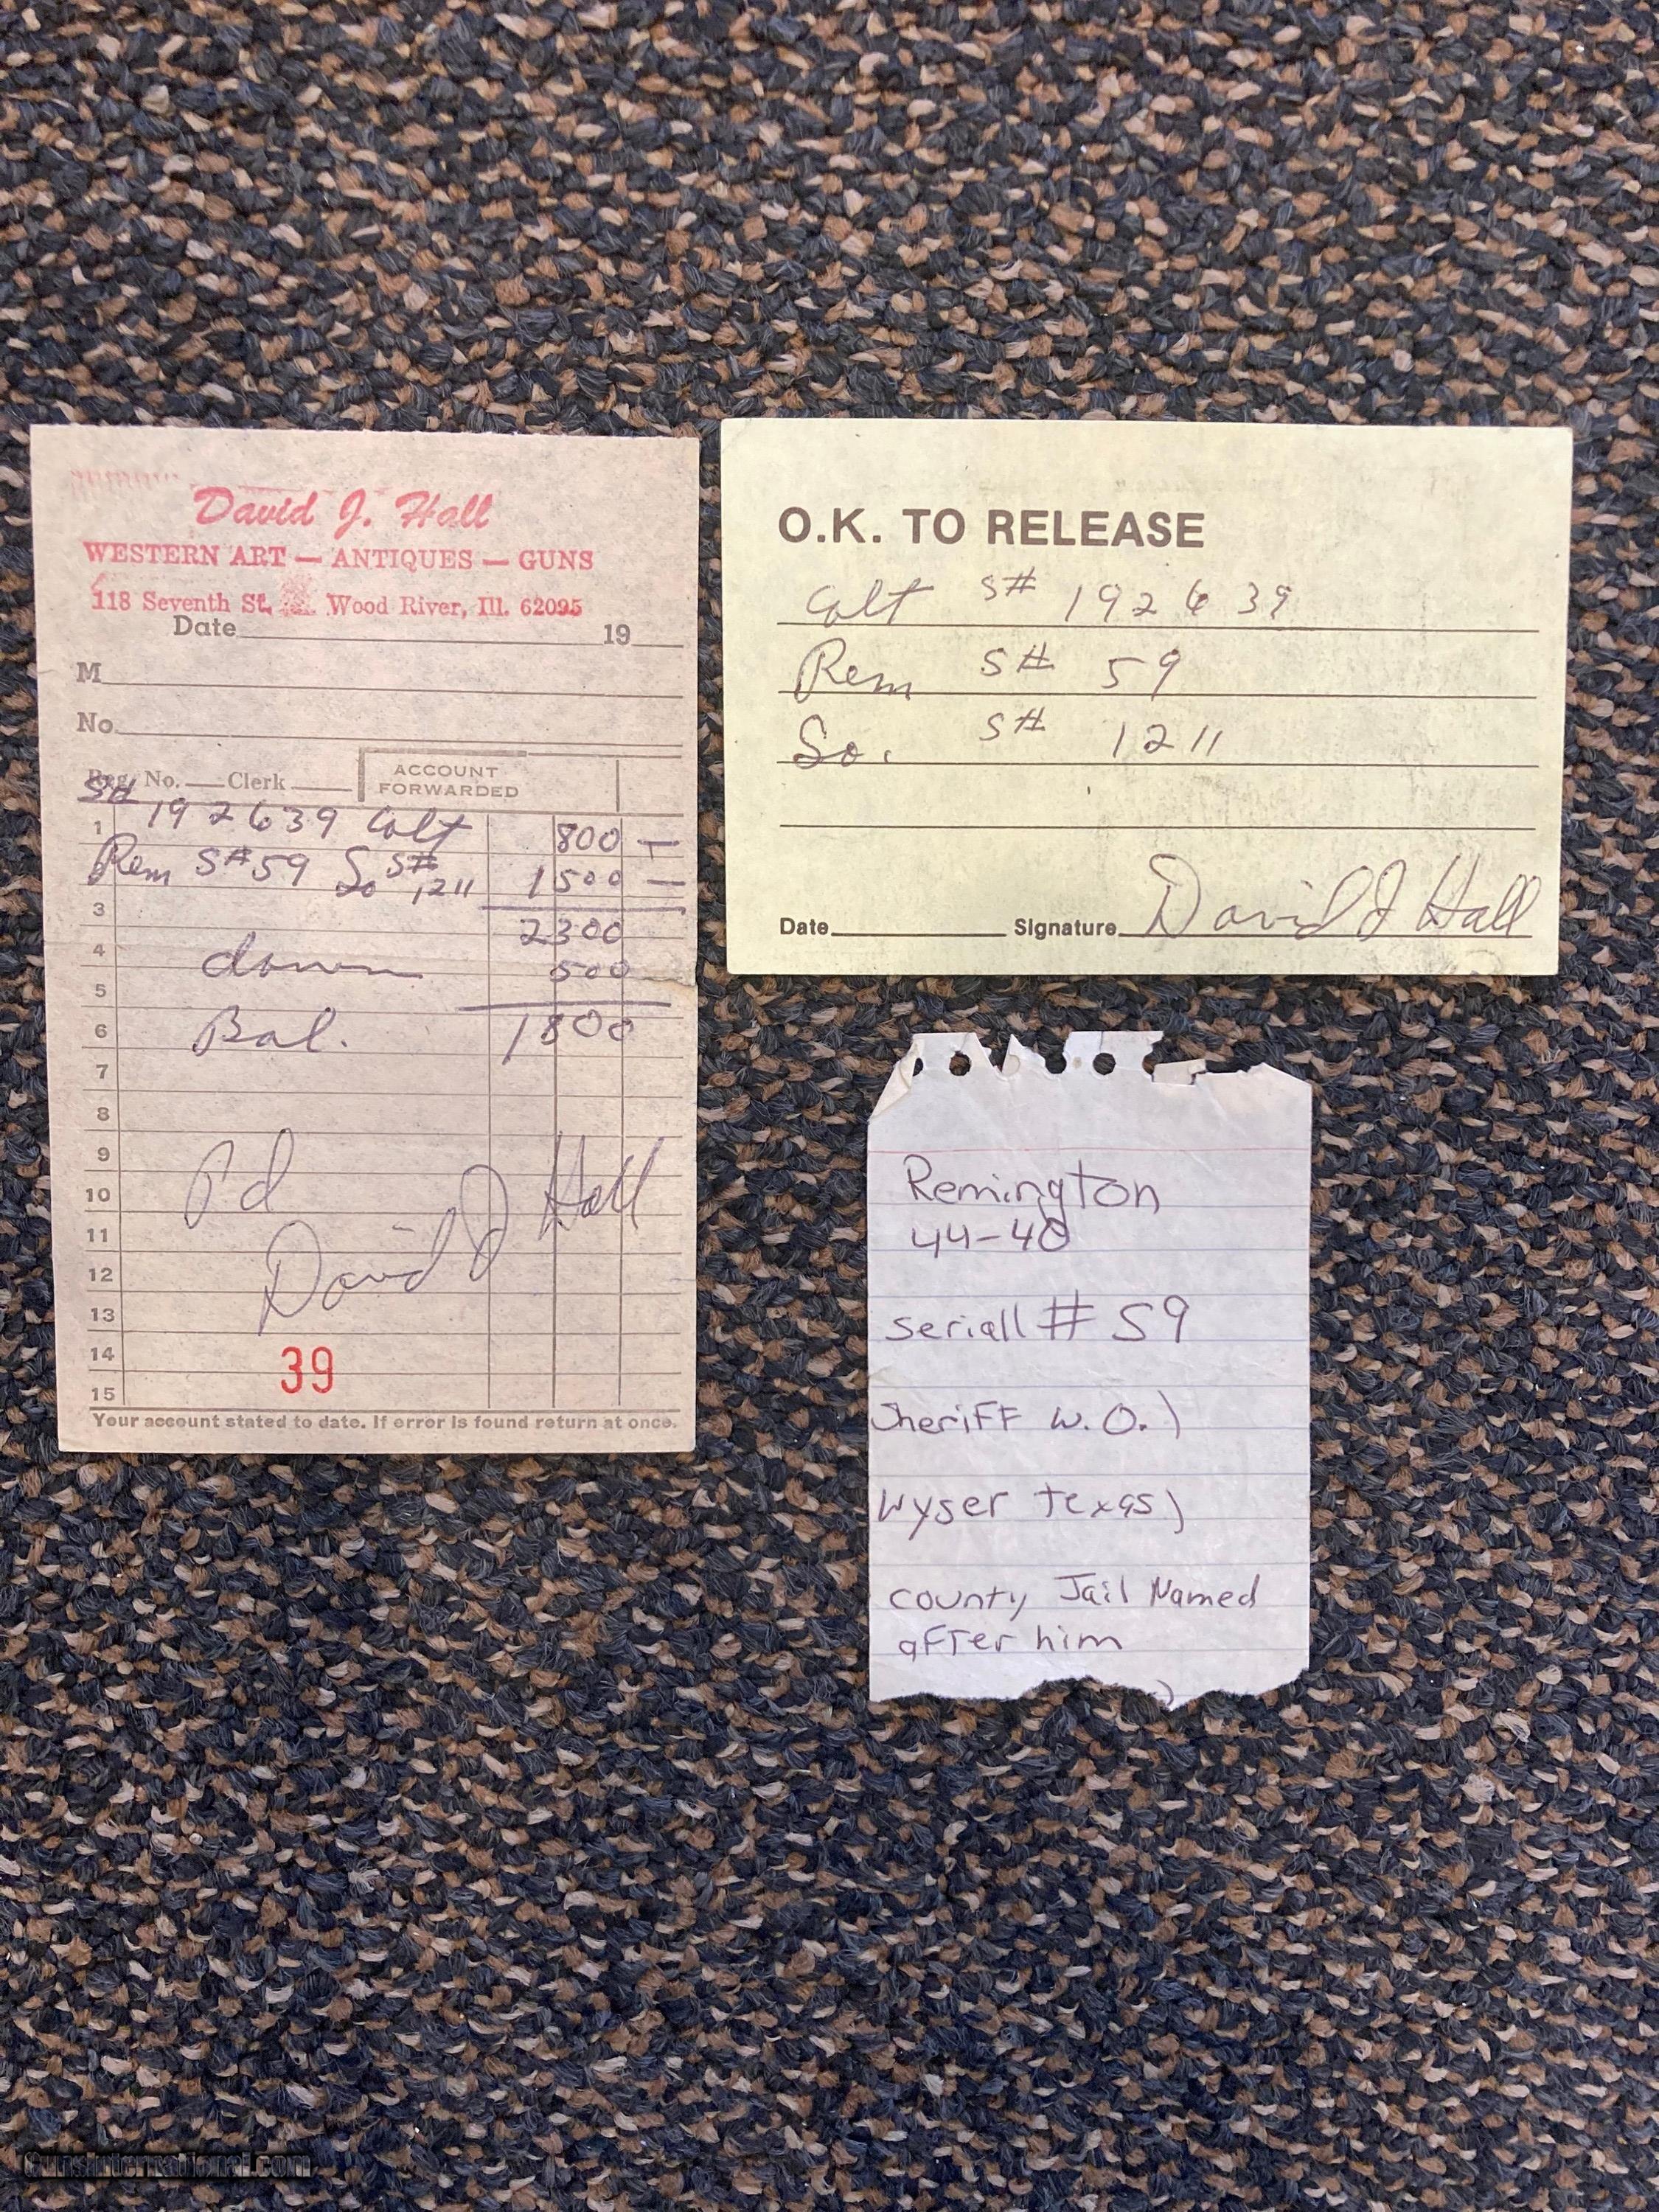 David J. Hall
WESTERN ART — ANTIQUES — GUNS
118 Seventh St. Wood River, Ill. 62095
Date 19
M
No.
Reg. No. Clerk ACCOUNT FORWARDED
S#
1 192639 Colt 800 —
Rem S# 59 So S# 1211 1500 —
3 2300
4 down 500
5
6 Bal. 1800
7
8
9
10 Pd
11
12 David J Hall
13
14 39
15
Your account stated to date. If error is found return at once.
O.K. TO RELEASE
Colt S# 192639
Rem S# 59
So. S# 1211
Date Signature David J Hall
Remington
44-40
seriall # 59
SheriFF W.O.)
Wyser Texas)
county Jail Named
aFTer him
GunsInternational.com